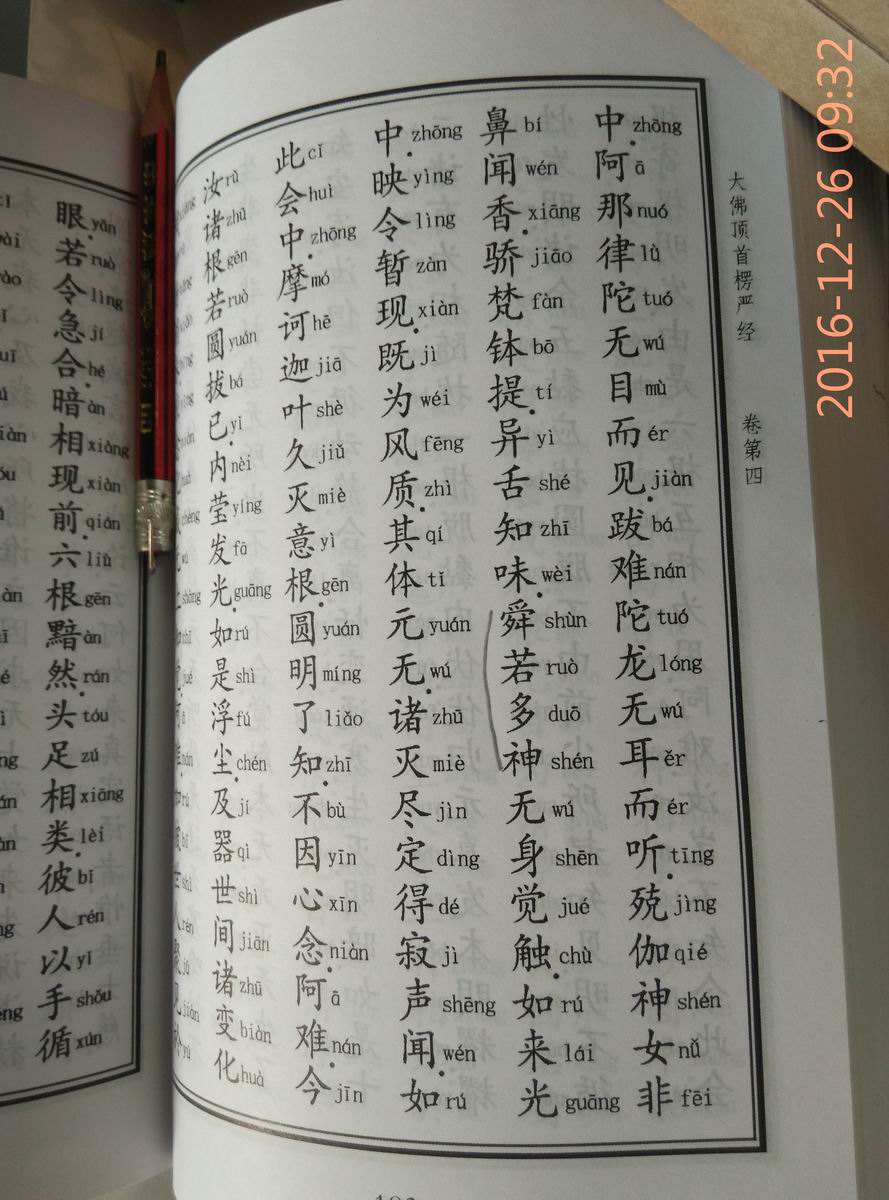 2016-12-26 09:32
大佛顶首楞严经 卷第四
中zhōng 阿ā 那nuó 律lǜ 陀tuó 无wú 目mù 而ér 见jiàn 跋bá 难nán 陀tuó 龙lóng 无wú 耳ěr 而ér 听tīng 殑jìng 伽qié 神shén 女nǚ 非fēi
鼻bí 闻wén 香xiāng 骄jiāo 梵fàn 钵bō 提tí 异yì 舌shé 知zhī 味wèi 舜shùn 若ruò 多duō 神shén 无wú 身shēn 觉jué 触chù 如rú 来lái 光guāng
中zhōng 映yìng 令lìng 暂zàn 现xiàn 既jì 为wéi 风fēng 质zhì 其qí 体tǐ 元yuán 无wú 诸zhū 灭miè 尽jìn 定dìng 得dé 寂jì 声shēng 闻wén 如rú
此cǐ 会huì 中zhōng 摩mó 诃hē 迦jiā 叶shè 久jiǔ 灭miè 意yì 根gēn 圆yuán 明míng 了liǎo 知zhī 不bù 因yīn 心xīn 念niàn 阿ā 难nán 今jīn
汝rǔ 诸zhū 根gēn 若ruò 圆yuán 拔bá 已yǐ 内nèi 莹yíng 发fā 光guāng 如rú 是shì 浮fú 尘chén 及jí 器qì 世shì 间jiān 诸zhū 变biàn 化huà
眼yǎn 若ruò 令lìng 急jí 合hé 暗àn 相xiàng 现xiàn 前qián 六liù 根gēn 黯àn 然rán 头tóu 足zú 相xiāng 类lèi 彼bǐ 人rén 以yǐ 手shǒu 循xún